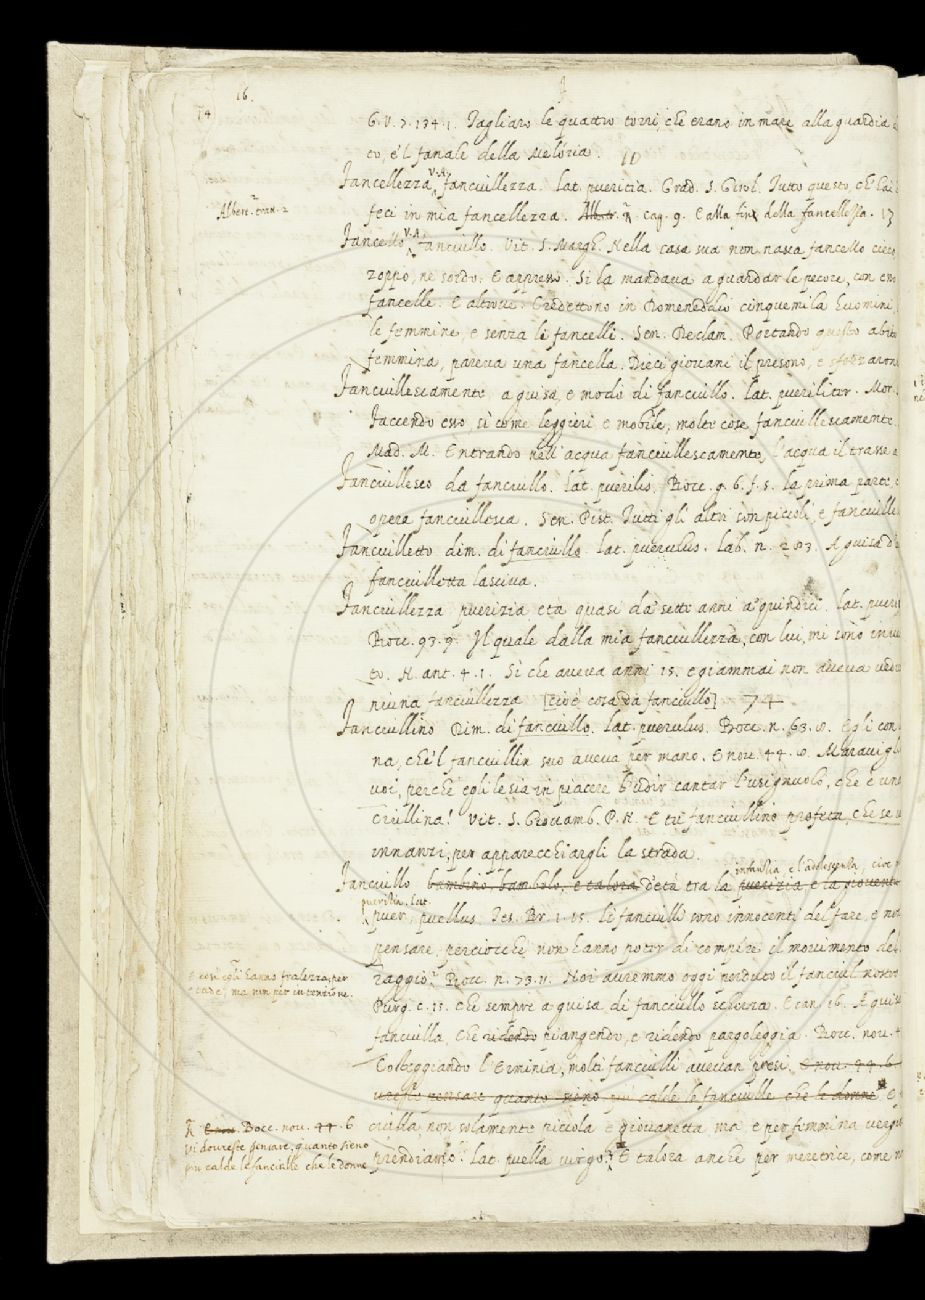 16.
14
G. V. 7. 134. 1. Tagliaro le quattro torri, che erano in mare alla guardia
to, e'l fanale della Meloria.
10
Fancellezza V.A. fanciullezza. Lat. pueritia. Grad. S. Girol. Tutto questo, ch'
Alber. tratt. 2
feci in mia fancellezza. cap. 9. E alla fine della fancellezza. 13
Fancello V.A. fanciullo. Vit. S. Margh. Nella casa sua non nasca fancello cieco
zoppo, nè sordo. E appresso. Si la mandava a guardar le pecore, con
fancelle. E altrove. Credettono in Domeneddio cinquemila huomini,
le femmine, e senza li fancelli. Sen. Declam. Portando questo abito
femmina, pareva una fancella. Dieci giovani il presono, e sforzaron
Fanciullescamente a guisa, e modo di fanciullo. Lat. pueriliter. Mor.
Faccendo esso, sì come leggieri e mobile, molte cose fanciullescamente.
Mad. M. Entrando nell'acqua fanciullescamente, l'acqua il trasse
Fanciullesco da fanciullo. Lat. puerilis. Bocc. g. 6. f. 5. La prima parte
opera fanciullesca. Sen. Pist. Tutti gli altri son piccioli, e fanciulle
Fanciulletto dim. di fanciullo. Lat. puerulus. Lab. n. 283. A guisa d'
fanciulletta lasciva.
Fanciullezza puerizia età quasi da sette anni a quindici. Lat. pueri
Bocc. 93. 9. Il quale dalla mia fanciullezza, con lui mi sono
to. N. ant. 4. 1. Sì che aveva anni 15. e giammai non aveva vedu
niuna fanciullezza [cioè cosa da fanciullo] 74
Fanciullino Dim. di fanciullo. Lat. puerulus. Bocc. n. 63. 8. Egli con
na, che'l fanciullin suo aveva per mano. E nov. 44. 8. Maravigl
voi, perchè egli le sia in piacere l'udir cantar l'usignuolo, che è una
ciullina! Vit. S. Giovamb. P. N. E tu fanciullino profeta, che se
innanzi, per apparecchiargli la strada.
infantia, e l'adolescentia, cioè
Fanciullo bambino, bambolo, e talora d'età tra la puerizia e la gioventù
pueritia, Lat.
puer, puellus. Tes. Br. 1. 15. li fanciulli sono innocenti del fare, e non
pensare, perciocchè non hanno poter di compire il movimento del
E così egli hanno fralezza, per
raggio. Bocc. n. 73. 11. Noi avremmo oggi perduto il fanciul nostro
etade, ma non per intenzione.
Purg. c. 15. che sempre a guisa di fanciullo scherza. E can. 16. A guisa
fanciulla, che ridendo piangendo, e ridendo pargoleggia. Bocc. nov. 4
Costeggiando l'Erminia, molti fanciulli avevan presi. E nov. 44. 6
vreste pensare quanto sieno più calde le fanciulle che le donne
E nov. Bocc. nov. 44. 6
ciulla non solamente piccola e giovanetta ma e per femmina verg
Vi dovreste pensare, quanto sieno
prendiamo. Lat. puella virgo. E talora anche per meretrice, come
più calde le fanciulle che le donne